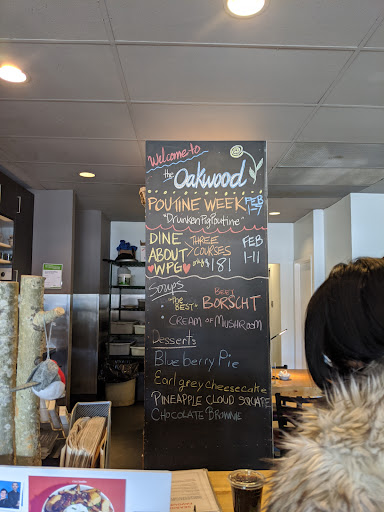 Welcome to
the Oakwood
POUTINE WEEK FEB 1-7
"Drunken Pig Poutine"
DINE ABOUT WPG
THREE COURSES
$18!
FEB 1-11
Soups
• THE BEST BEET BORSCHT
• CREAM OF MUSHROOM
Desserts
Blueberry Pie
Earl grey cheesecake
PINEAPPLE CLOUD SQUARE
CHOCOLATE BROWNIE